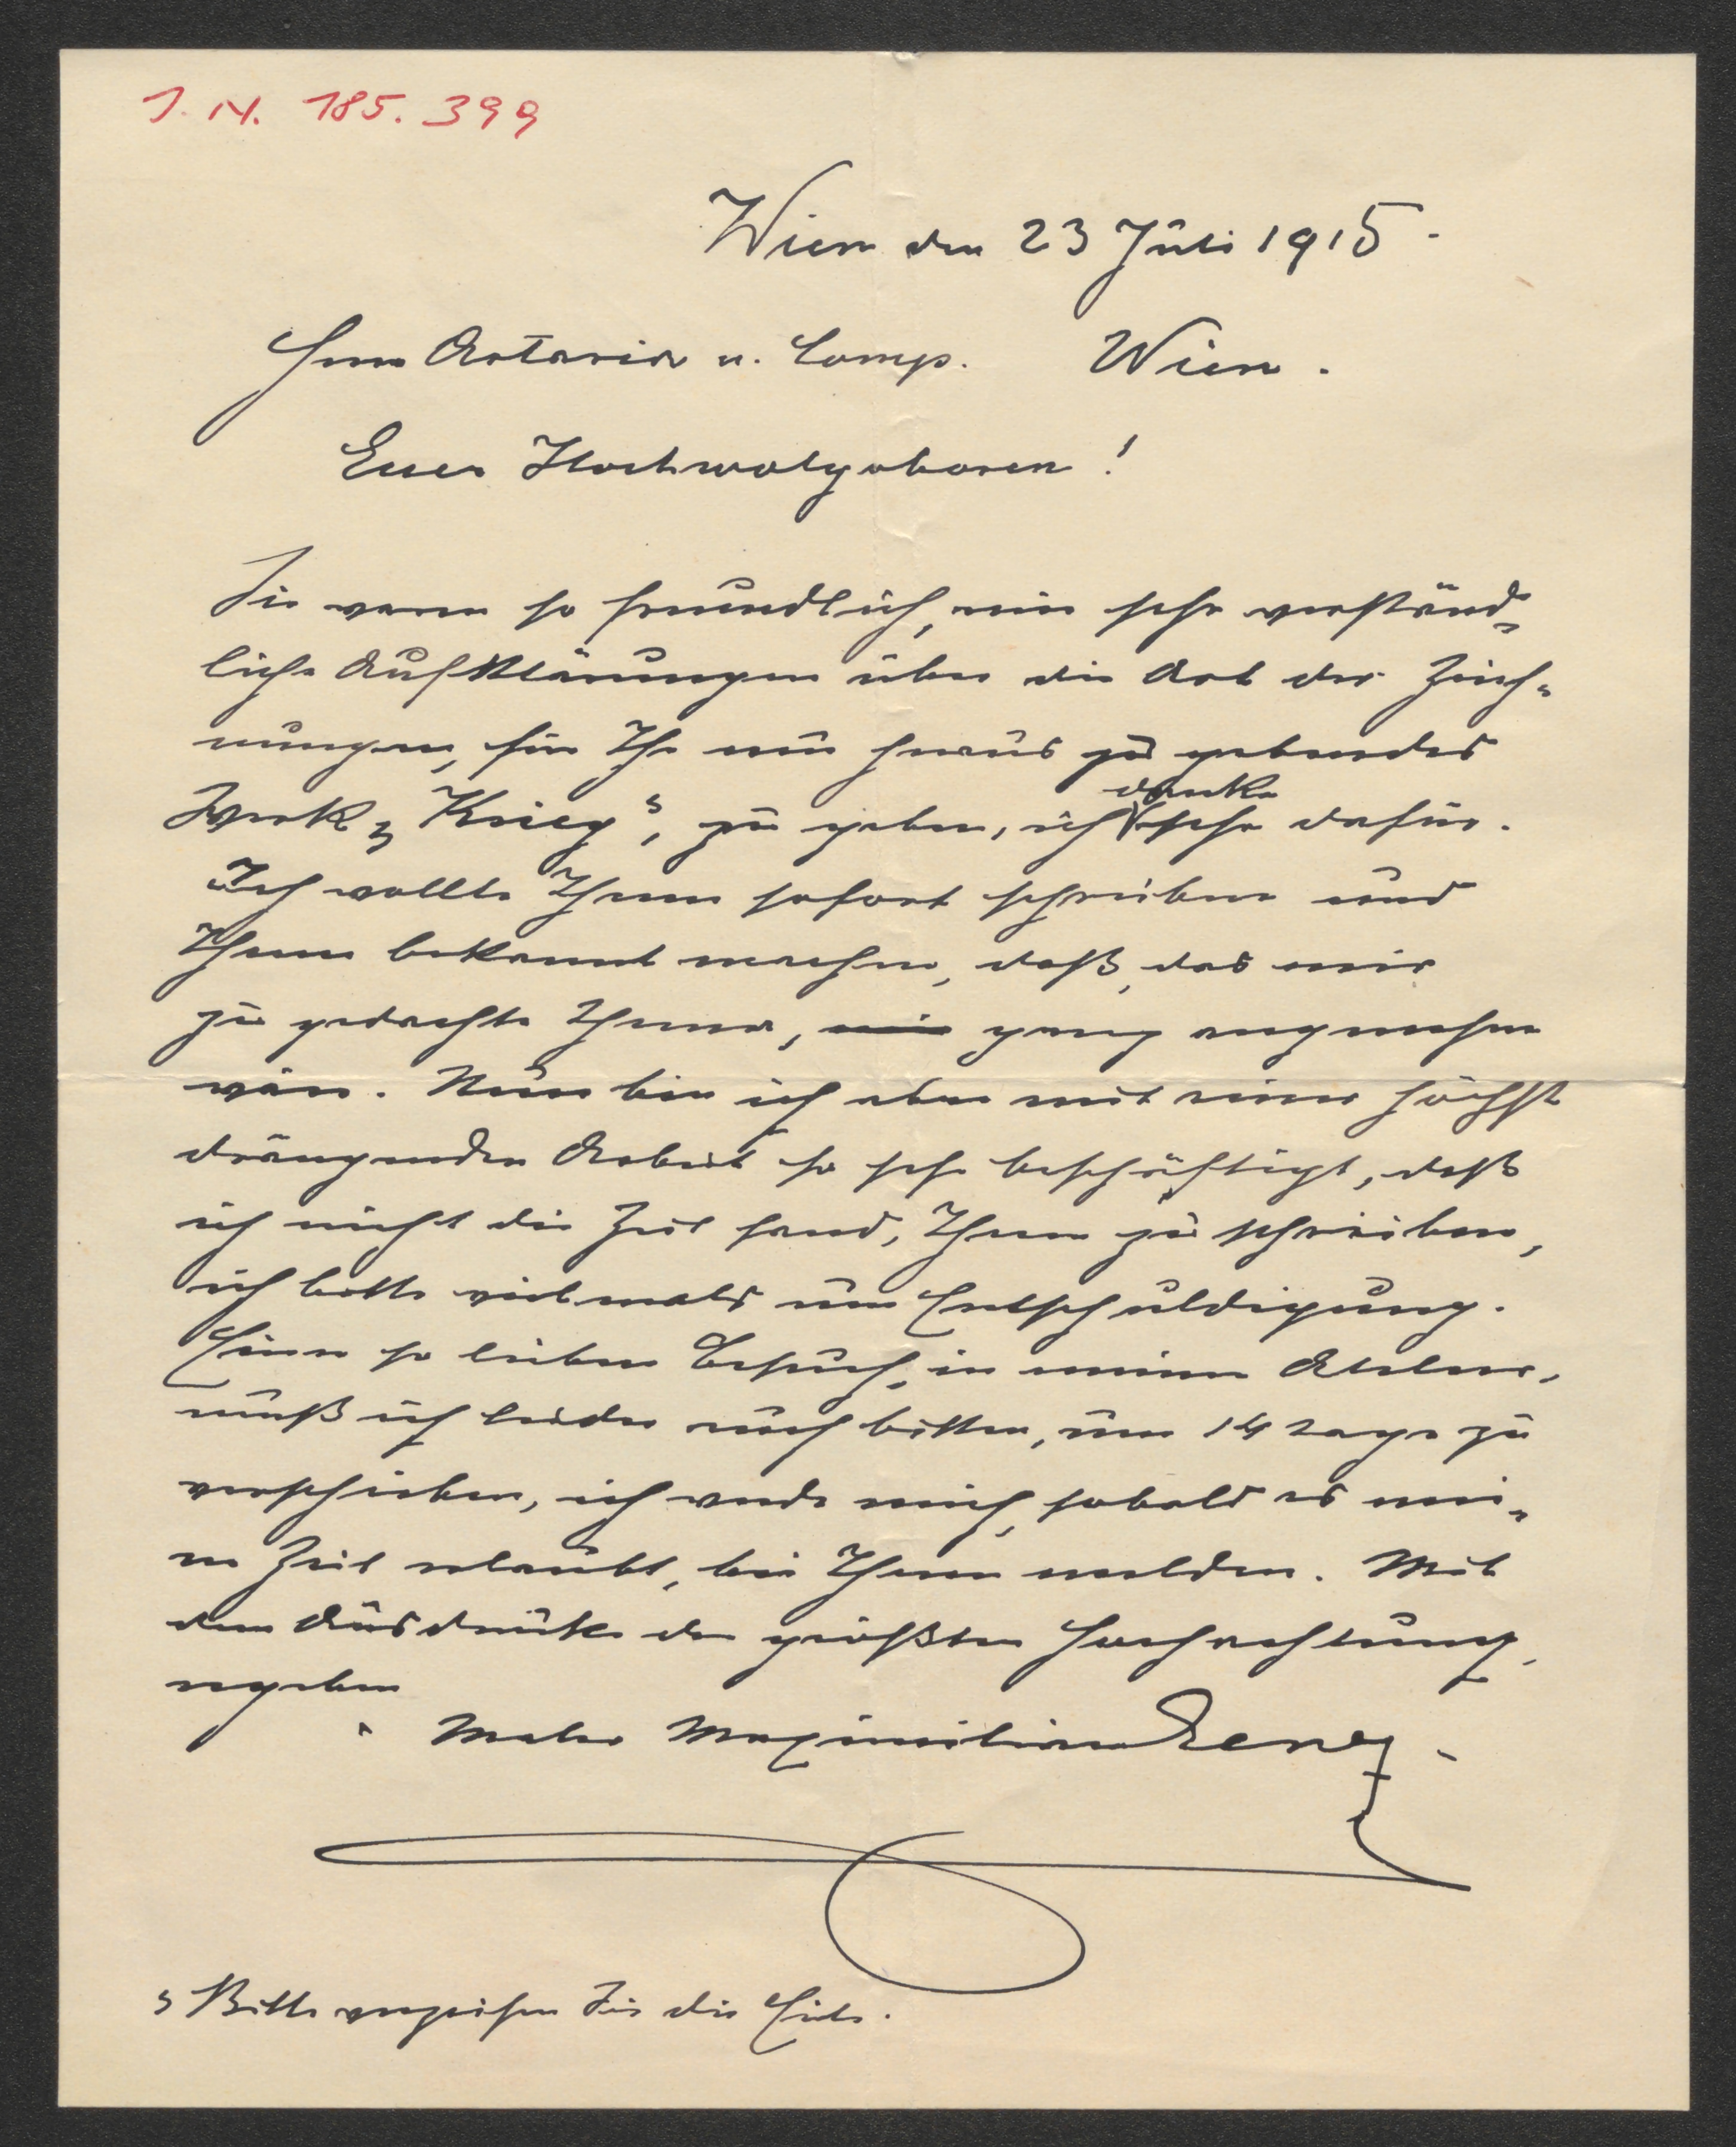 J. N. 185.399
Wien den 23 Juli 1915.
Herrn Artaria u. Comp. Wien.
Euer Hochwolgeboren!
Sie waren so freundlich, mir sehr verständ-
liche Aufklärungen über die Art der Zeich-
nungen, für Ihr neu heraus zu gebendes
Werk „Krieg“, zu geben, ich danke sehr dafür.
Ich wollte Ihnen sofort schreiben und
Ihnen bekannt machen, daß, das mir
zu gedachte Thema, mir ganz angenehm
wäre. Nun bin ich aber mit einer höchst
drängenden Arbeit so sehr beschäftigt, daß
ich nicht die Zeit fand, Ihnen zu schreiben,
ich bitte vielmals um Entschuldigung.
Einen so lieben Besuch, in meinem Atelier,
muß ich leider noch bitten, um 14 Tage zu
verschieben, ich werde mich, sobald es mei-
ne Zeit erlaubt, bei Ihnen melden. Mit
dem Ausdrucke der größten Hochachtung,
ergeben
Maler Maximilian Lenz.
Bitte verzeihen Sie die Eile.